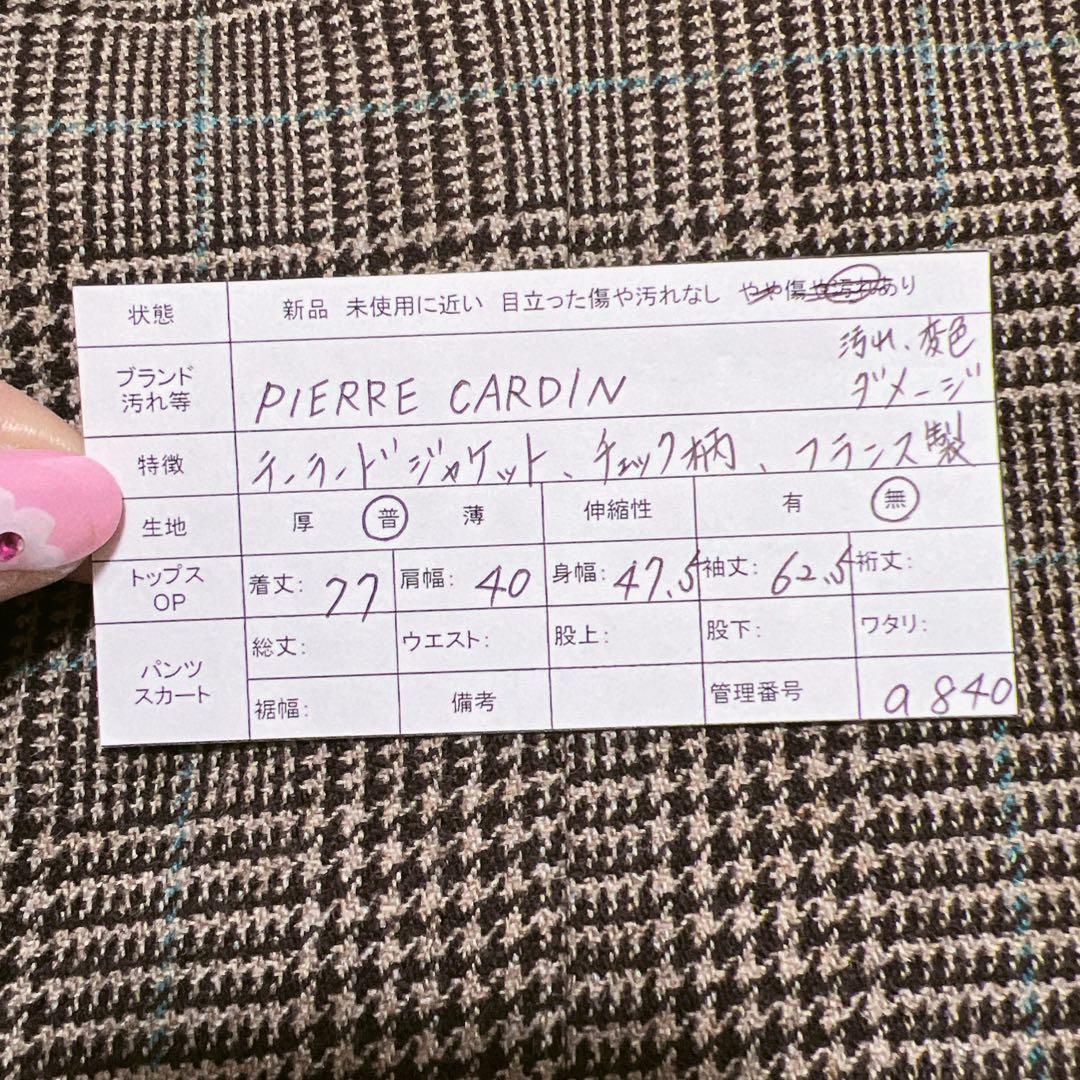 状態 新品 未使用に近い 目立った傷や汚れなし やや傷や汚れあり
汚れ、変色
ダメージ
ブランド
汚れ等
PIERRE CARDIN
特徴 テーラードジャケット、チェック柄、フランス製
生地 厚 普 薄 伸縮性 有 無
トップス
OP
着丈: 77 肩幅: 40 身幅: 47.5 袖丈: 62.5 裄丈:
パンツ
スカート
総丈: ウエスト: 股上: 股下: ワタリ:
裾幅: 備考 管理番号 a840